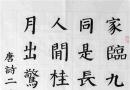 家臨九
同是長
人間桂
月出驚
唐詩二